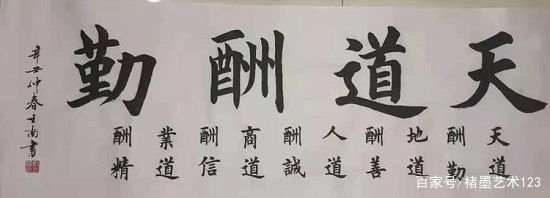 天道酬勤
天道酬勤地道酬善人道酬誠商道酬信業道酬精
辛丑仲春南書
百家号/楮墨艺术123